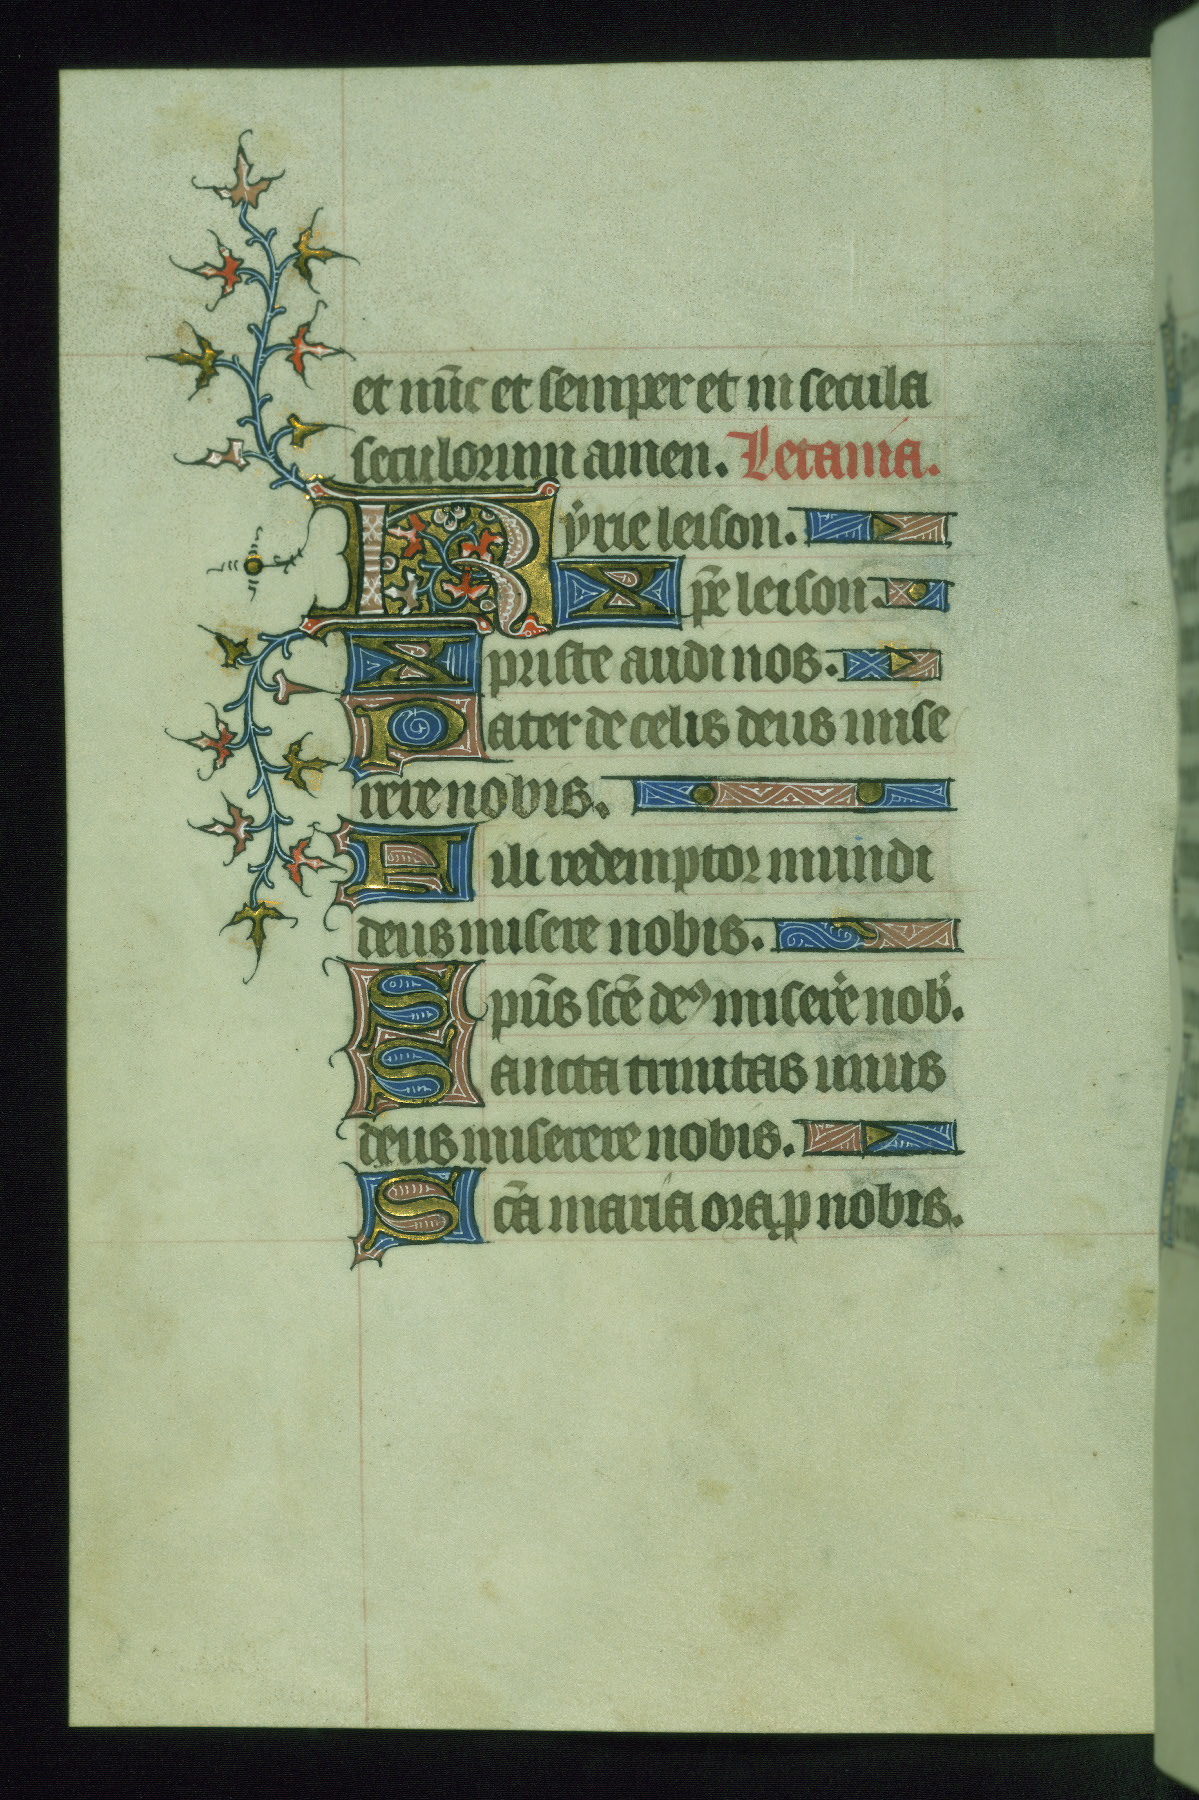 et nũc et semper et in secula
seculorum amen. Letania.
Kyrie leison.
Xp̃e leison.
Xpriste audi nos.
Pater de celis deus mise
rere nobis.
Fili redemptor mundi
deus misere nobis.
Spũs sc̃e de⁹ misere᷑ nob̾.
Sancta trinitas unus
deus miserere nobis.
Sc̃a maria ora p nobis.